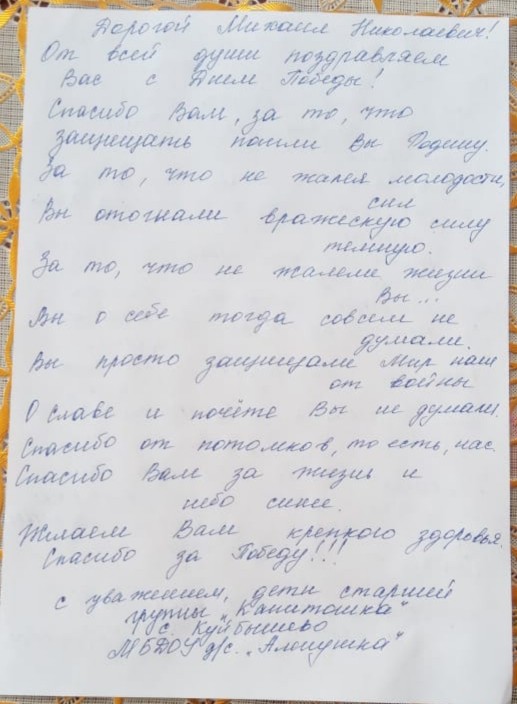 Дорогой Михаил Николаевич!
От всей души поздравляем
Вас с Днем Победы!
Спасибо Вам, за то, что
защищать пошли Вы Родину.
За то, что не жалея молодости,
сил
Вы отогнали вражескую силу
темную.
За то, что не жалели жизни
Вы...
Вы о себе тогда совсем не
думали.
Вы просто защищали Мир наш
от войны
О славе и почёте Вы не думали.
Спасибо от потомков, то есть, нас.
Спасибо Вам за жизнь и
небо синее.
Желаем Вам крепкого здоровья.
Спасибо за Победу!!!
с уважением, дети старшей
группы „Капитошка"
с. Куйбышево
МБДОУ д/с. „Аленушка"